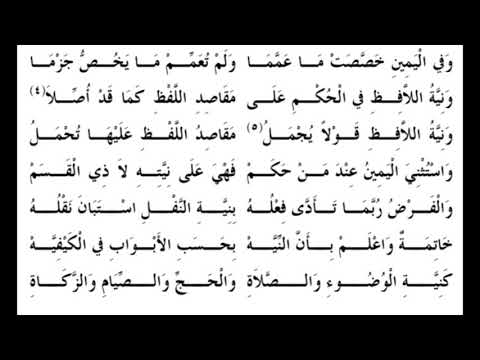 وَفِي الْيَمِينِ خَصَّصَتْ مَا عَمَّمَا وَلَمْ تُعَمِّمْ مَا يَخُصُّ جَزْمَا
وَنِيَّةُ اللاَّفِظِ فِي الْحُكْمِ عَلَى مَقَاصِدِ اللَّفْظِ كَمَا قَدْ أُصِّلاَ (٤)
وَنِيَّةُ اللاَّفِظِ قَوْلاً يُجْمَلُ (٥) مَقَاصِدُ اللَّفْظِ عَلَيْهَا تُحْمَلُ
وَاسْتُثْنِيَ الْيَمِينُ عِنْدَ مَنْ حَكَمْ فَهْيَ عَلَى نِيَّتِهِ لاَ ذِي الْقَسَمْ
وَالْفَرْضُ رُبَّمَا تَأَدَّى فِعْلُهُ بِنِيَّةِ النَّفْلِ اسْتَبَانَ نَقْلُهُ
خَاتِمَةٌ وَاعْلَمْ بِأَنَّ النِّيَّهْ بِحَسَبِ الْأَبْوَابِ فِي الْكَيْفِيَّهْ
كَنِيَّةِ الْوُضُوءِ وَالصَّلاَةِ وَالْحَجِّ وَالصِّيَامِ وَالزَّكَاةِ